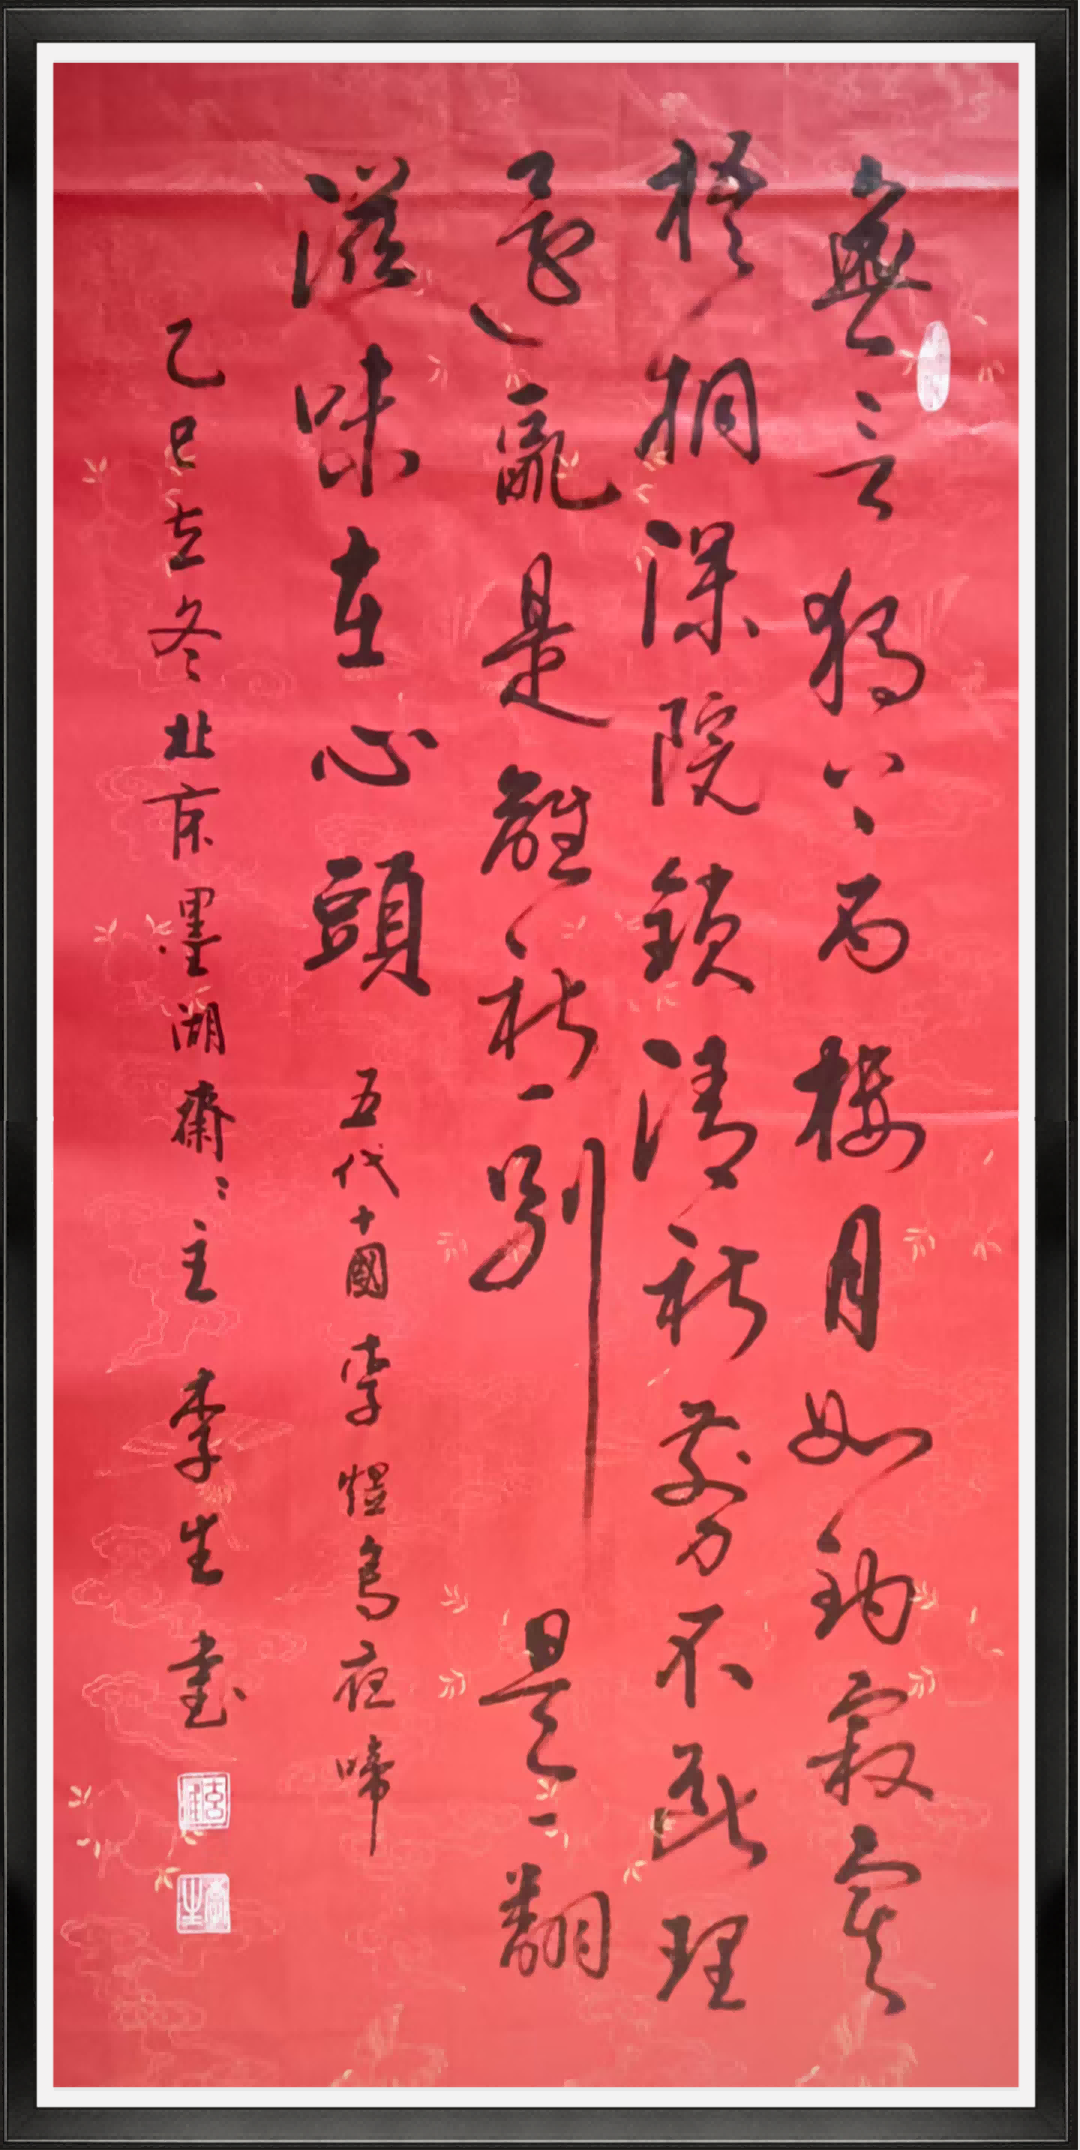 無言獨上西樓月如鉤寂寞
梧桐深院鎖清秋剪不斷理
還亂是離愁別是一翻
滋味在心頭 五代十國李煜烏夜啼
乙巳立冬北京墨湖齋々主李生書
李生